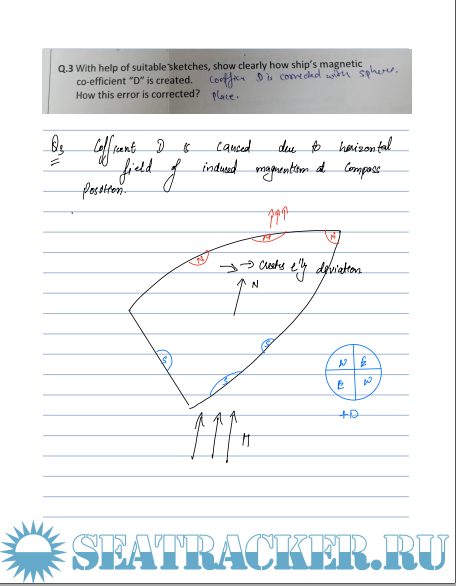 Q.3 With help of suitable sketches, show clearly how ship's magnetic
co-efficient "D" is created. Coeffien D is corrected with sphere.
How this error is corrected? Place.
Q3 Coffcient D is caused due to horizontal
field of induced magnetism at compass
position.
N N N
→ Creates E'ly deviation
N
S S S
N E
E W
+D
H
SEATRACKER.RU